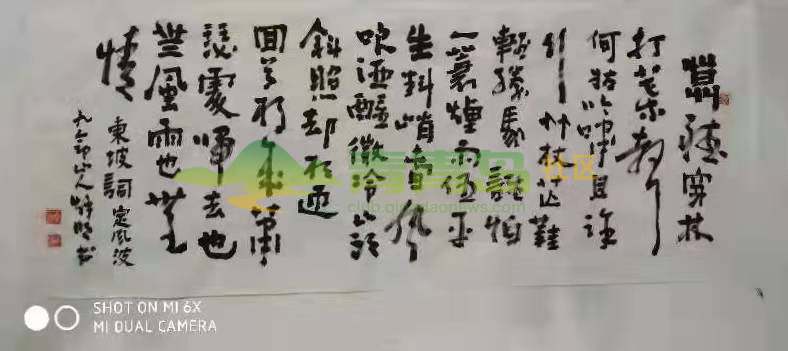 莫聽穿林
打葉聲
何妨吟嘯且徐
行竹杖芒鞋
輕勝馬誰怕
一蓑煙雨任平
生料峭春風
吹酒醒微冷山頭
斜照却相迎
回首向來蕭
瑟處歸去也
無風雨也無
情
東坡詞定風波
山人
書
青青岛社区
club.qingdaonews.com
SHOT ON MI 6X
MI DUAL CAMERA